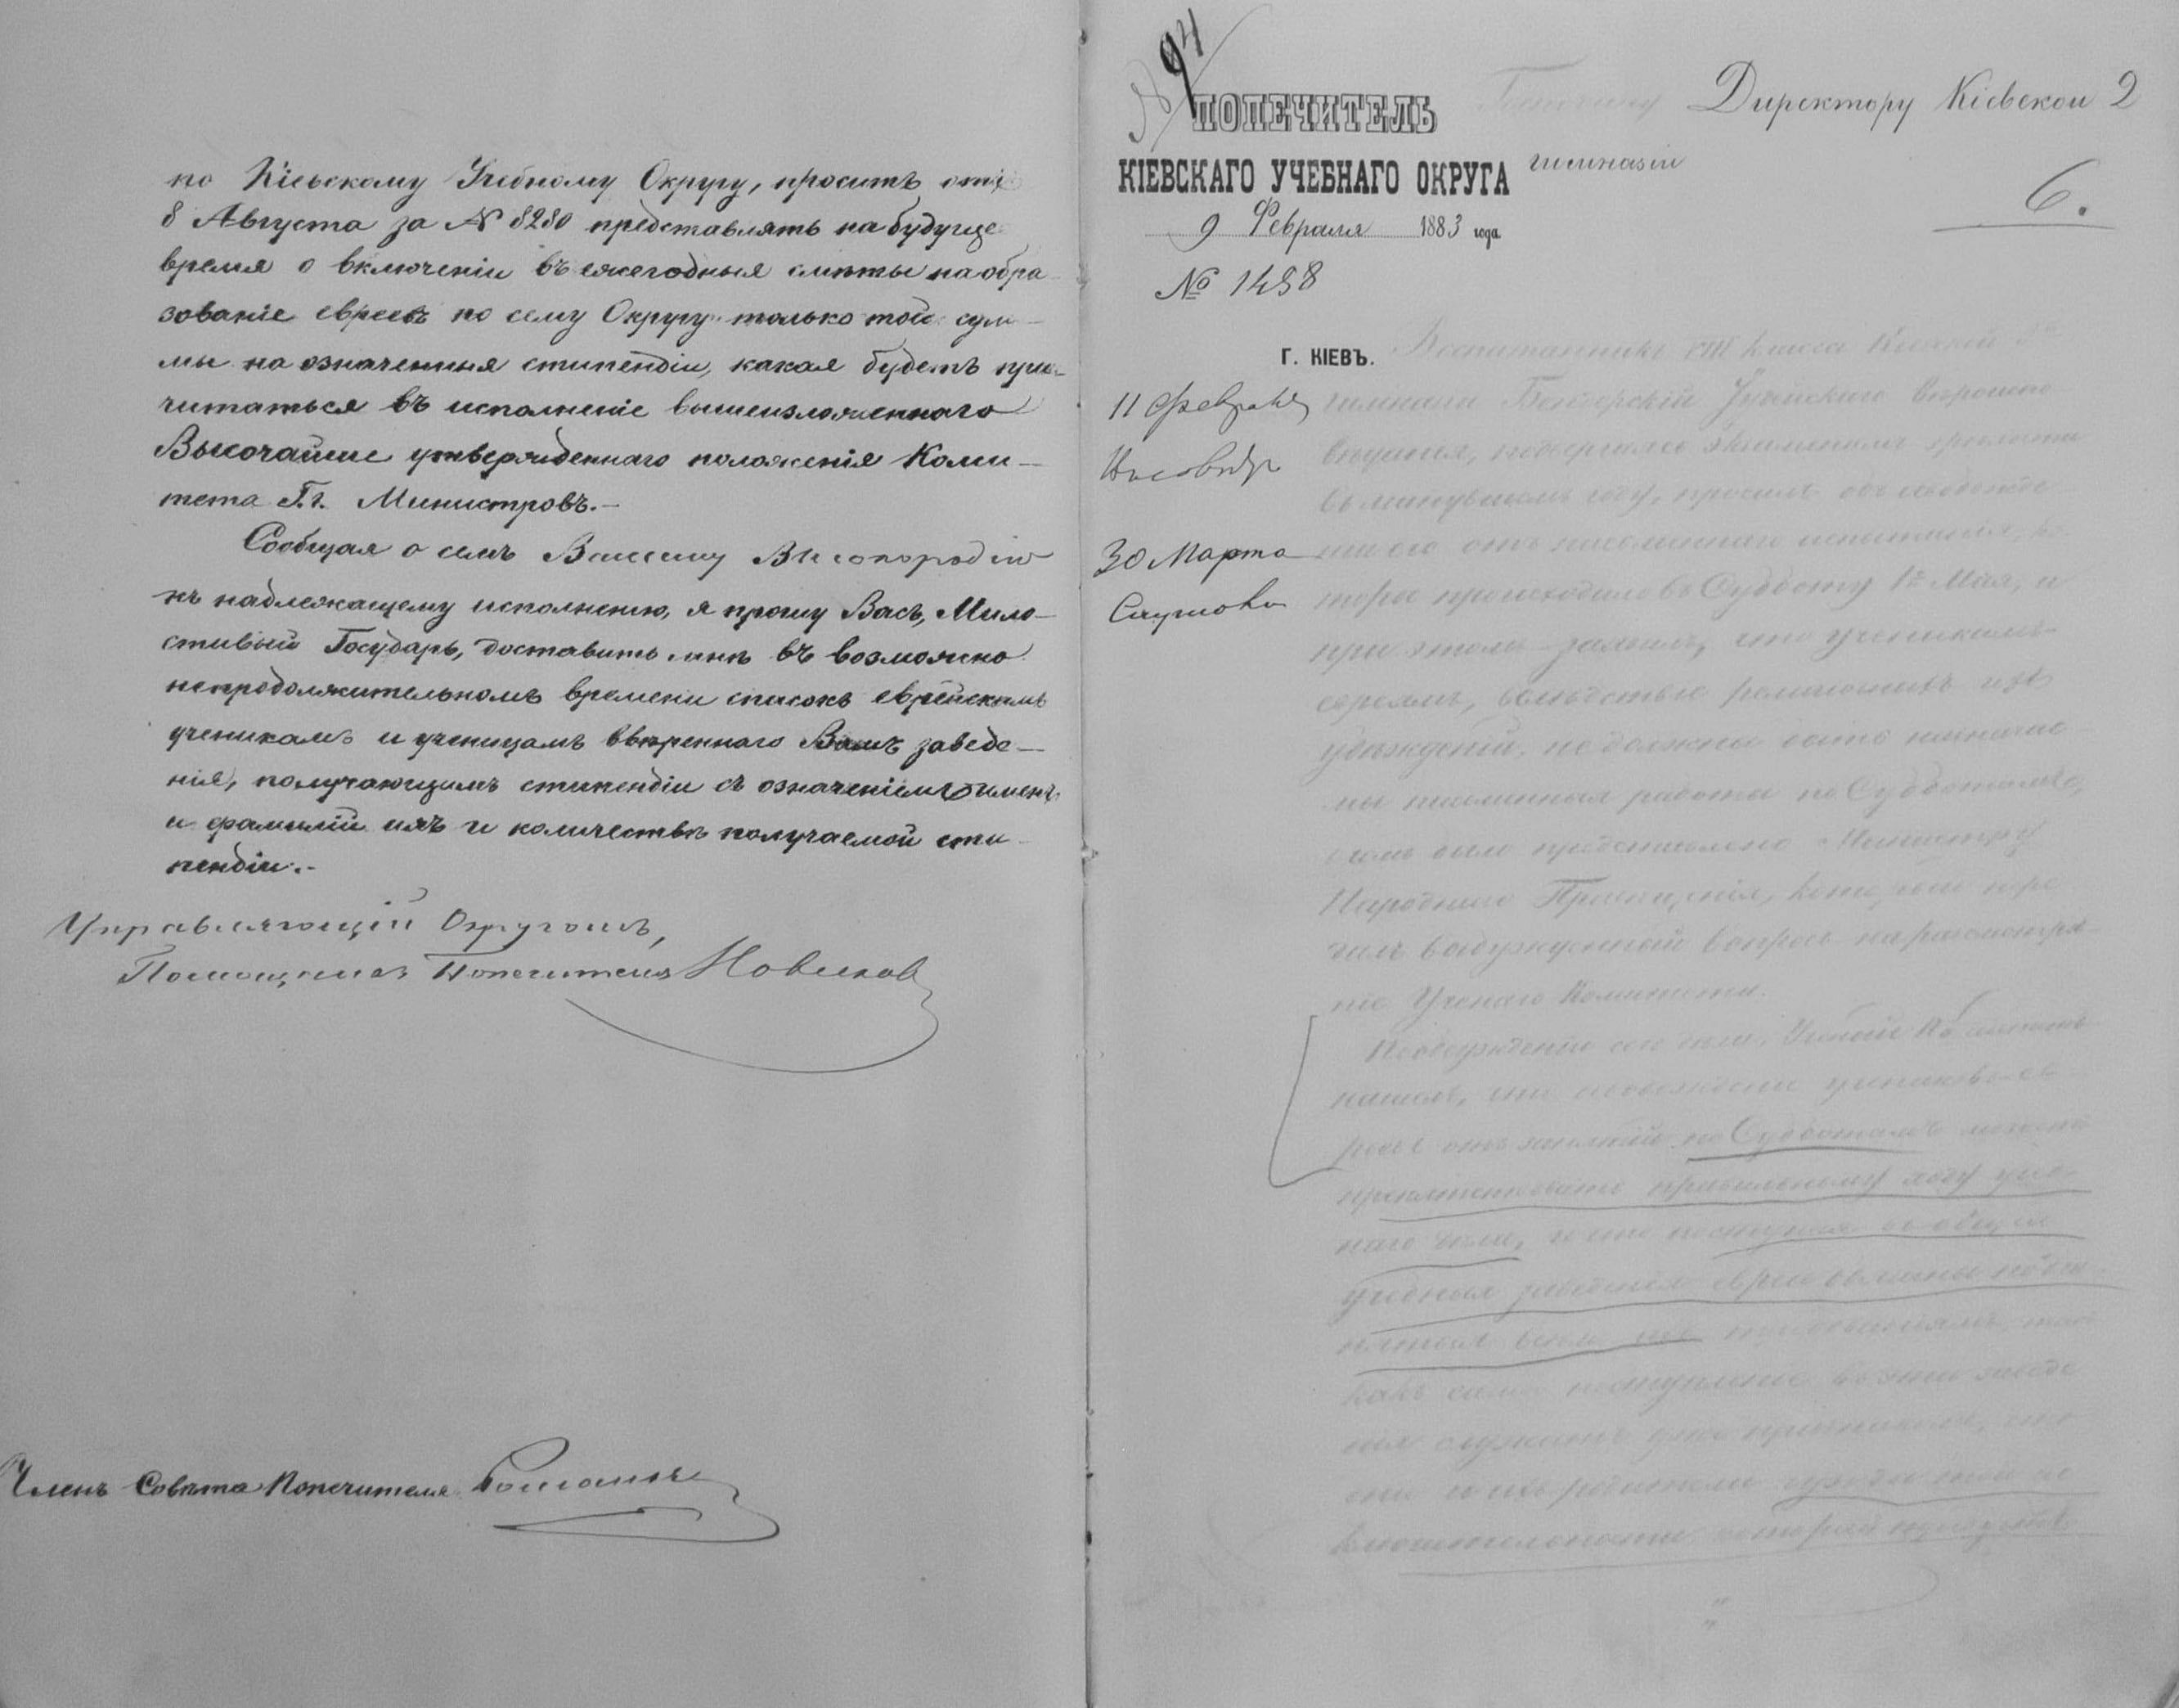 по Кіевскому Учебному Округу, проситъ отъ
8 Августа за № 8280 представлять на будущее
время о включеніи въ ежегодныя смѣты на обра
зованіе евреевъ по сему Округу только той сум-
мы на означенныя стипендіи, какая будетъ при-
читаться въ исполненіе вышеизложеннаго
Высочайше утвержденнаго положенія Коми-
тета Г.г. Министровъ.-
Сообщая о семъ Вашему Высокородію
къ надлежащему исполненію, я прошу Васъ, Мило-
стивый Государь, доставить мнѣ въ возможно
непродолжительномъ времени списокъ еврейскимъ
ученикамъ и ученицамъ ввѣреннаго Вамъ заведе-
нія, получающимъ стипендіи съ означеніемъ именъ
и фамилій ихъ и количествѣ получаемой сти-
пендіи.-
Управляющій Округомъ,
Помощникъ Попечителя Новиковъ
Членъ Совѣта Попечителя
94
ПОПЕЧИТЕЛЬ
КІЕВСКАГО УЧЕБНАГО ОКРУГА
9 Февраля 1883 года
№ 1498
Г. КІЕВЪ.
Господину Директору Кіевской 2
гимназіи
6.
11 Февраля
30 Марта
Воспитанникъ VIII класса Кіевской
гимназіи
въ минувшемъ году, просилъ объ освобожде
ніи его отъ письменнаго испытанія, ко
торое происходило въ Субботу 1го Мая, и
при этомъ заявилъ, что ученикамъ
евреямъ, вслѣдствіе религіозныхъ ихъ
убѣжденій не должны быть назначае
мы письменныя работы по Субботамъ,
о чемъ было представлено Министру
Народнаго Просвѣщенія, который пере
далъ возбужденный вопросъ на разсмотрѣ-
ніе Ученаго Комитета.
По обсужденіи сего дѣла, Ученый Комитетъ
нашелъ, что освобожденіе учениковъ ев
реевъ отъ занятій по Субботамъ можетъ
препятствовать правильному ходу учеб
наго дѣла, и что поступая въ общія
учебныя заведенія евреи должны подчи
няться всѣмъ ихъ требованіямъ, такъ
какъ самое поступленіе въ эти заведе
нія служитъ уже признакомъ, что
они и ихъ родители чужды той ис
ключительности